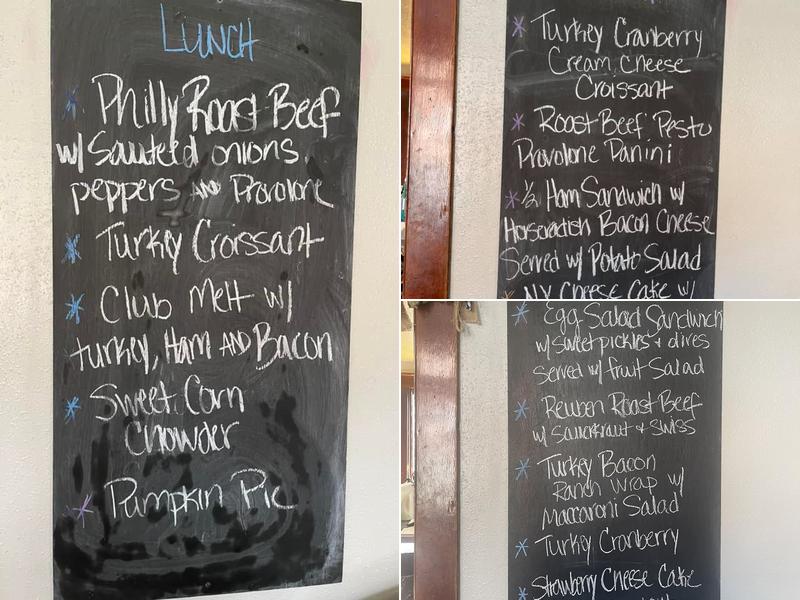 LUNCH
* Philly Roast Beef
w/ Sauteed onions
peppers AND Provolone
* Turkey Croissant
* Club Melt w/
turkey, Ham AND Bacon
* Sweet Corn
Chowder
* Pumpkin Pie
* Turkey Cranberry
Cream Cheese
Croissant
* Roast Beef Pesto
Provolone Panini
* 1/2 Ham Sandwich w/
Horseradish Bacon Cheese
Served w/ Potato Salad
* NY Cheese Cake w/
* Egg Salad Sandwich
w/ sweet pickles + olives
served w/ fruit Salad
* Reuben Roast Beef
w/ Sauerkraut + Swiss
* Turkey Bacon
Ranch Wrap w/
Maccaroni Salad
* Turkey Cranberry
* Strawberry Cheese Cake